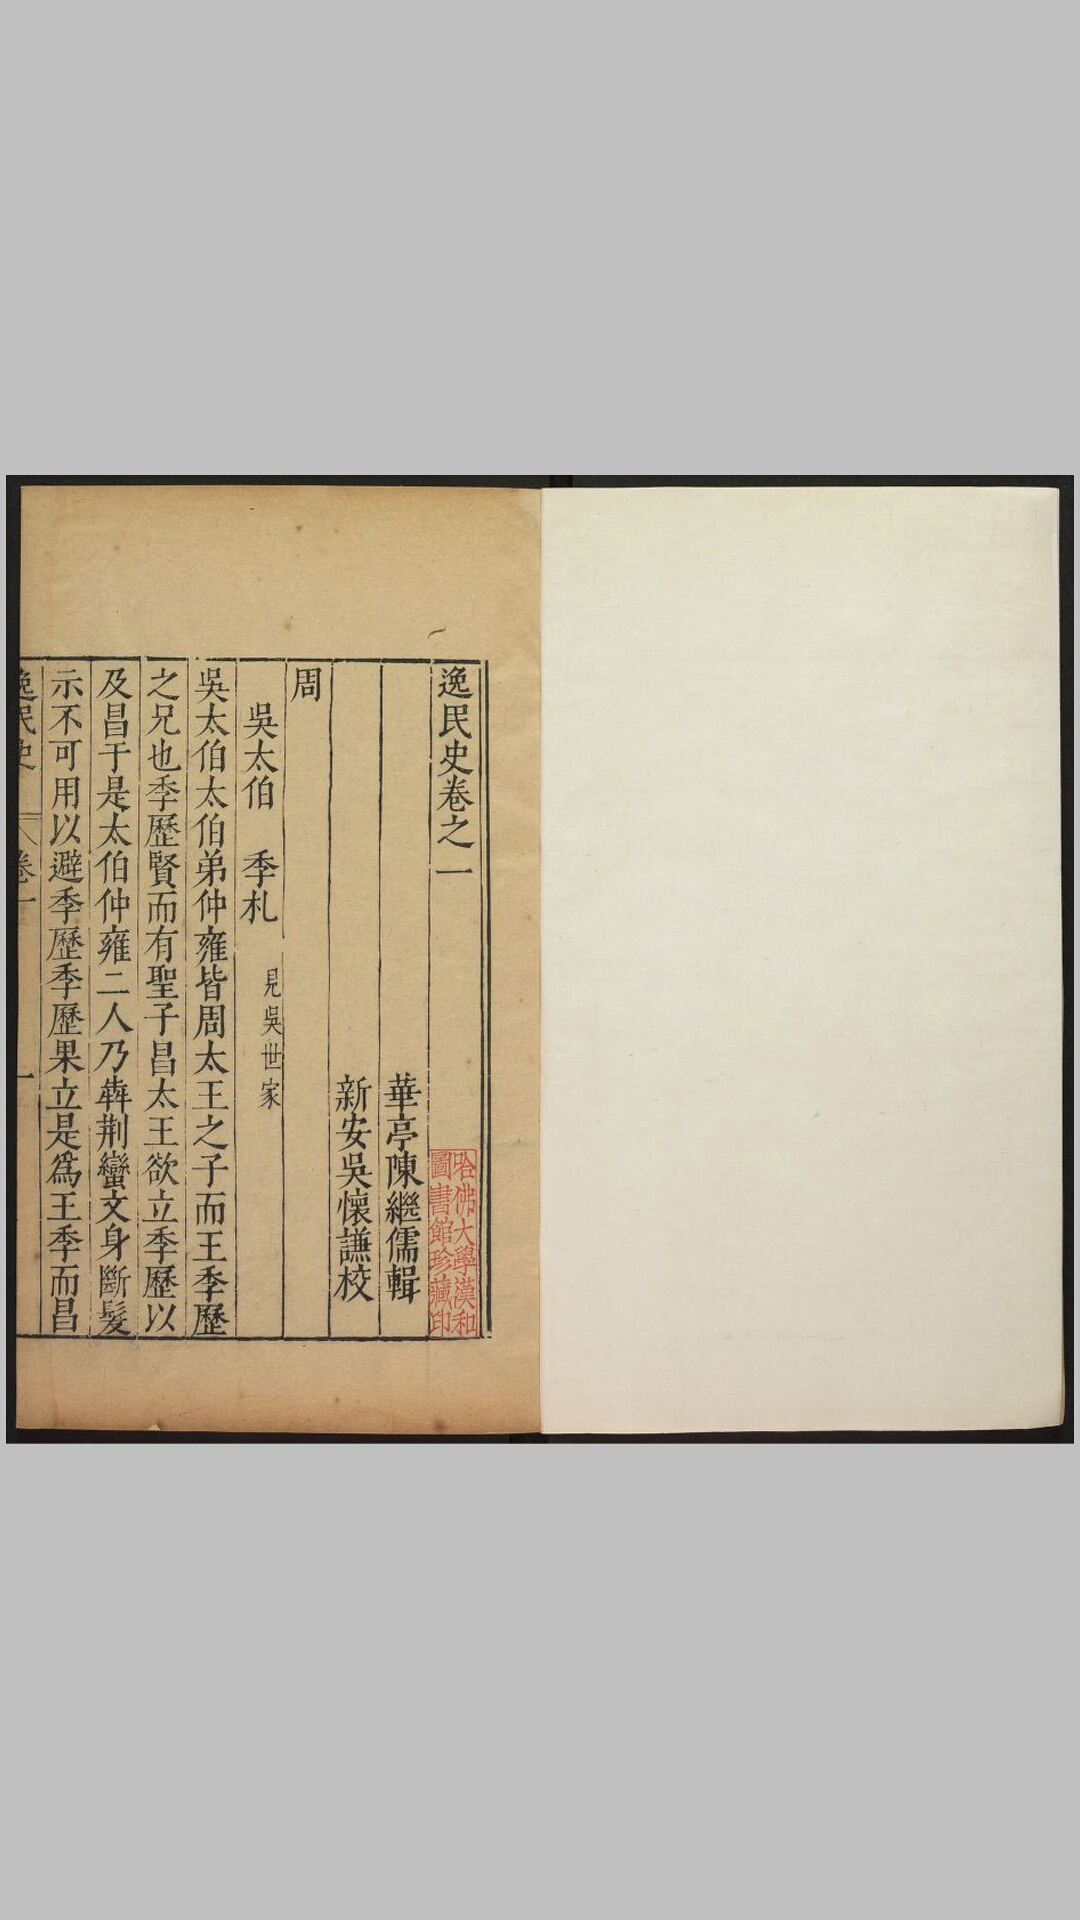 逸民史卷之一
哈佛大學漢和
圖書館珍藏印
華亭陳繼儒輯
新安吳懷謙校
周
吳太伯　季札　見吳世家
吳太伯太伯弟仲雍皆周太王之子而王季歷
之兄也季歷賢而有聖子昌太王欲立季歷以
及昌于是太伯仲雍二人乃犇荆蠻文身斷髮
示不可用以避季歷季歷果立是爲王季而昌
逸民史　卷一　一